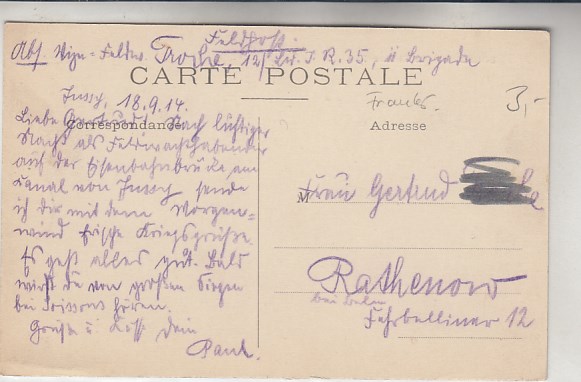 Feldpost.
Abs. Vize-Feldw. 12/ Lw. I. R. 35., Brigade
CARTE POSTALE
Jussy, 18.9.14.
Frankr.
3,-
Correspondance
Adresse
Liebe Gertrud! Nach luftiger
Nacht als Feldwachhabender
auf der Eisenbahnbrücke am
Kanal von Jussy sende
ich dir mit dem Morgen-
wind frische Kriegsgrüße.
Es geht alles gut. Bald
wirst du von großen Siegen
bei Soissons hören.
Gruß u. Kuß Dein
Paul.
M
Frau Gertrud
Rathenow
bei Berlin
Fehrbelliner 12